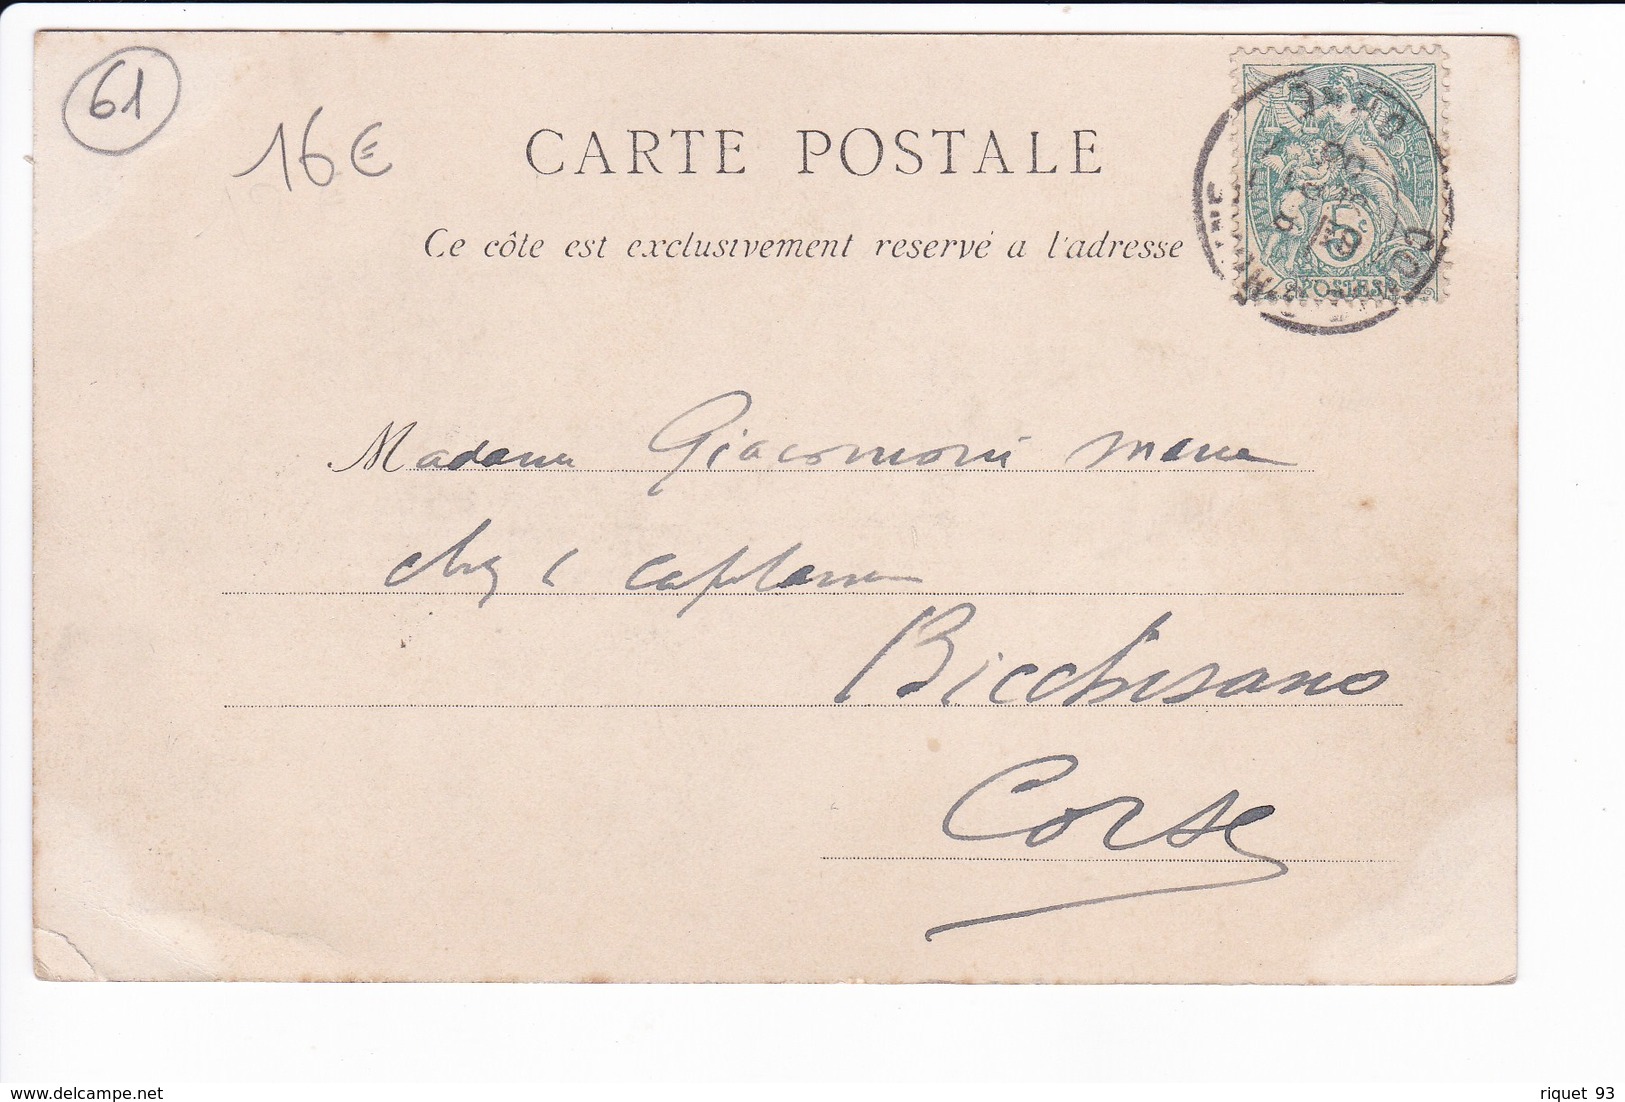 61
16€
CARTE POSTALE
Ce côte est exclusivement reservé a l'adresse
5
POSTES
Madame Giacomoni
chez
Bicchisano
Corse
delcampe.net
riquet 93